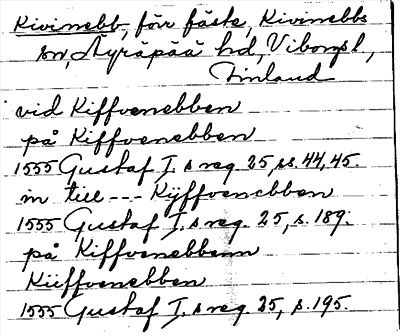 Kivinebb, förr fäste, Kivinebbs
sn, Äyräpää hd, Viborgs l,
Finland
vid Kiffvenebben
på Kiffvenebben
1555 Gustaf I.s reg. 25, ss. 44, 45.
in till --- Kÿffvenebben
1555 Gustaf I.s reg. 25, s. 189.
på Kiffvenebbenn
Kiiffvenebben
1555 Gustaf I.s reg. 25, s. 195.